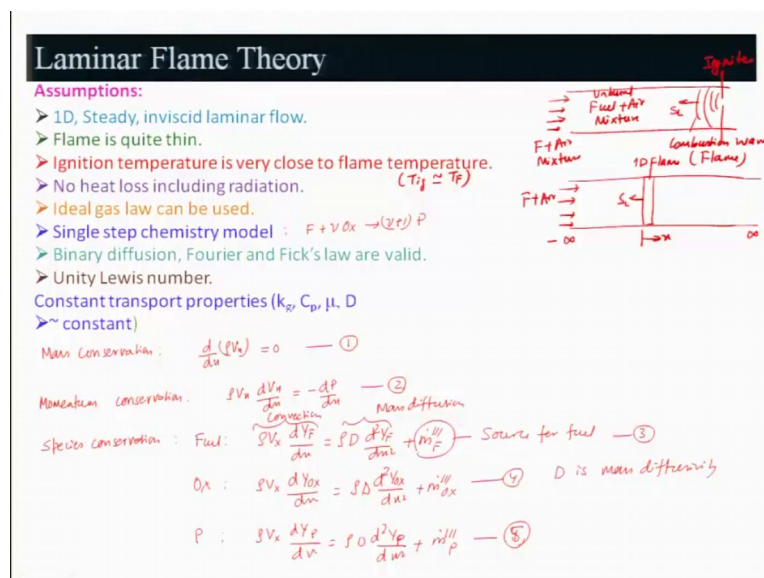 Laminar Flame Theory
Assumptions:
➤ 1D, Steady, inviscid laminar flow.
➤ Flame is quite thin.
➤ Ignition temperature is very close to flame temperature.
(Tig ≃ TF)
➤ No heat loss including radiation.
➤ Ideal gas law can be used.
➤ Single step chemistry model : F + ν Ox → (ν+1) P
➤ Binary diffusion, Fourier and Fick's law are valid.
➤ Unity Lewis number.
Constant transport properties (kg, Cp, μ, D
➤~ constant)
Igniter
Unburnt
Fuel + Air
Mixture
SL
F + Air
Mixture
Combustion wave
(Flame)
1D Flame
F + Air
SL
- ∞
x
∞
Mass conservation : d/dx (ρVx) = 0 — ①
Momentum conservation. ρVx dVx/dx = - dP/dx — ②
Convection Mass diffusion
Species conservation : Fuel : ρVx dYF/dx = ρD d²YF/dx² + ṁF''' — Source for fuel — ③
Ox : ρVx dYox/dx = ρD d²Yox/dx² + ṁ'''ox — ④ D is mass diffusivity
P : ρVx dYP/dx = ρD d²YP/dx² + ṁ'''P — ⑤